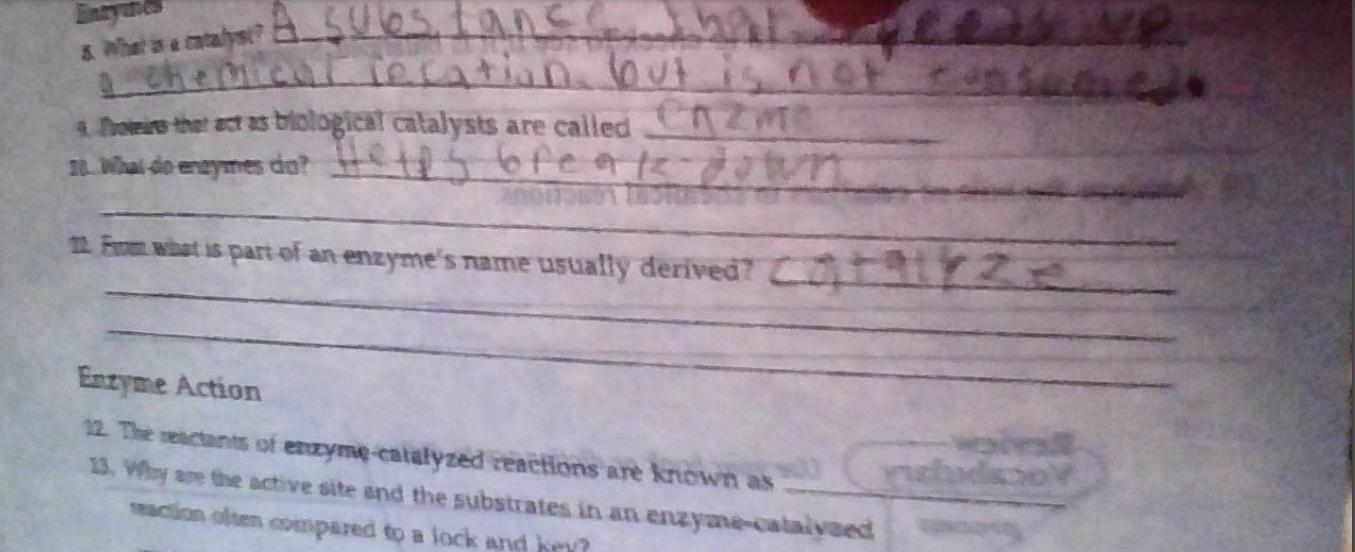 Enzymes
8. What is a catalyst? A substance that speeds up
a chemical recation but is not consumed.
9. Proteins that act as biological catalysts are called enzme
10. What do enzymes do? Helps break-down
11. From what is part of an enzyme's name usually derived? catalyze
Enzyme Action
12. The reactants of enzyme-catalyzed reactions are known as
13. Why are the active site and the substrates in an enzyme-catalyzed
reaction often compared to a lock and key?